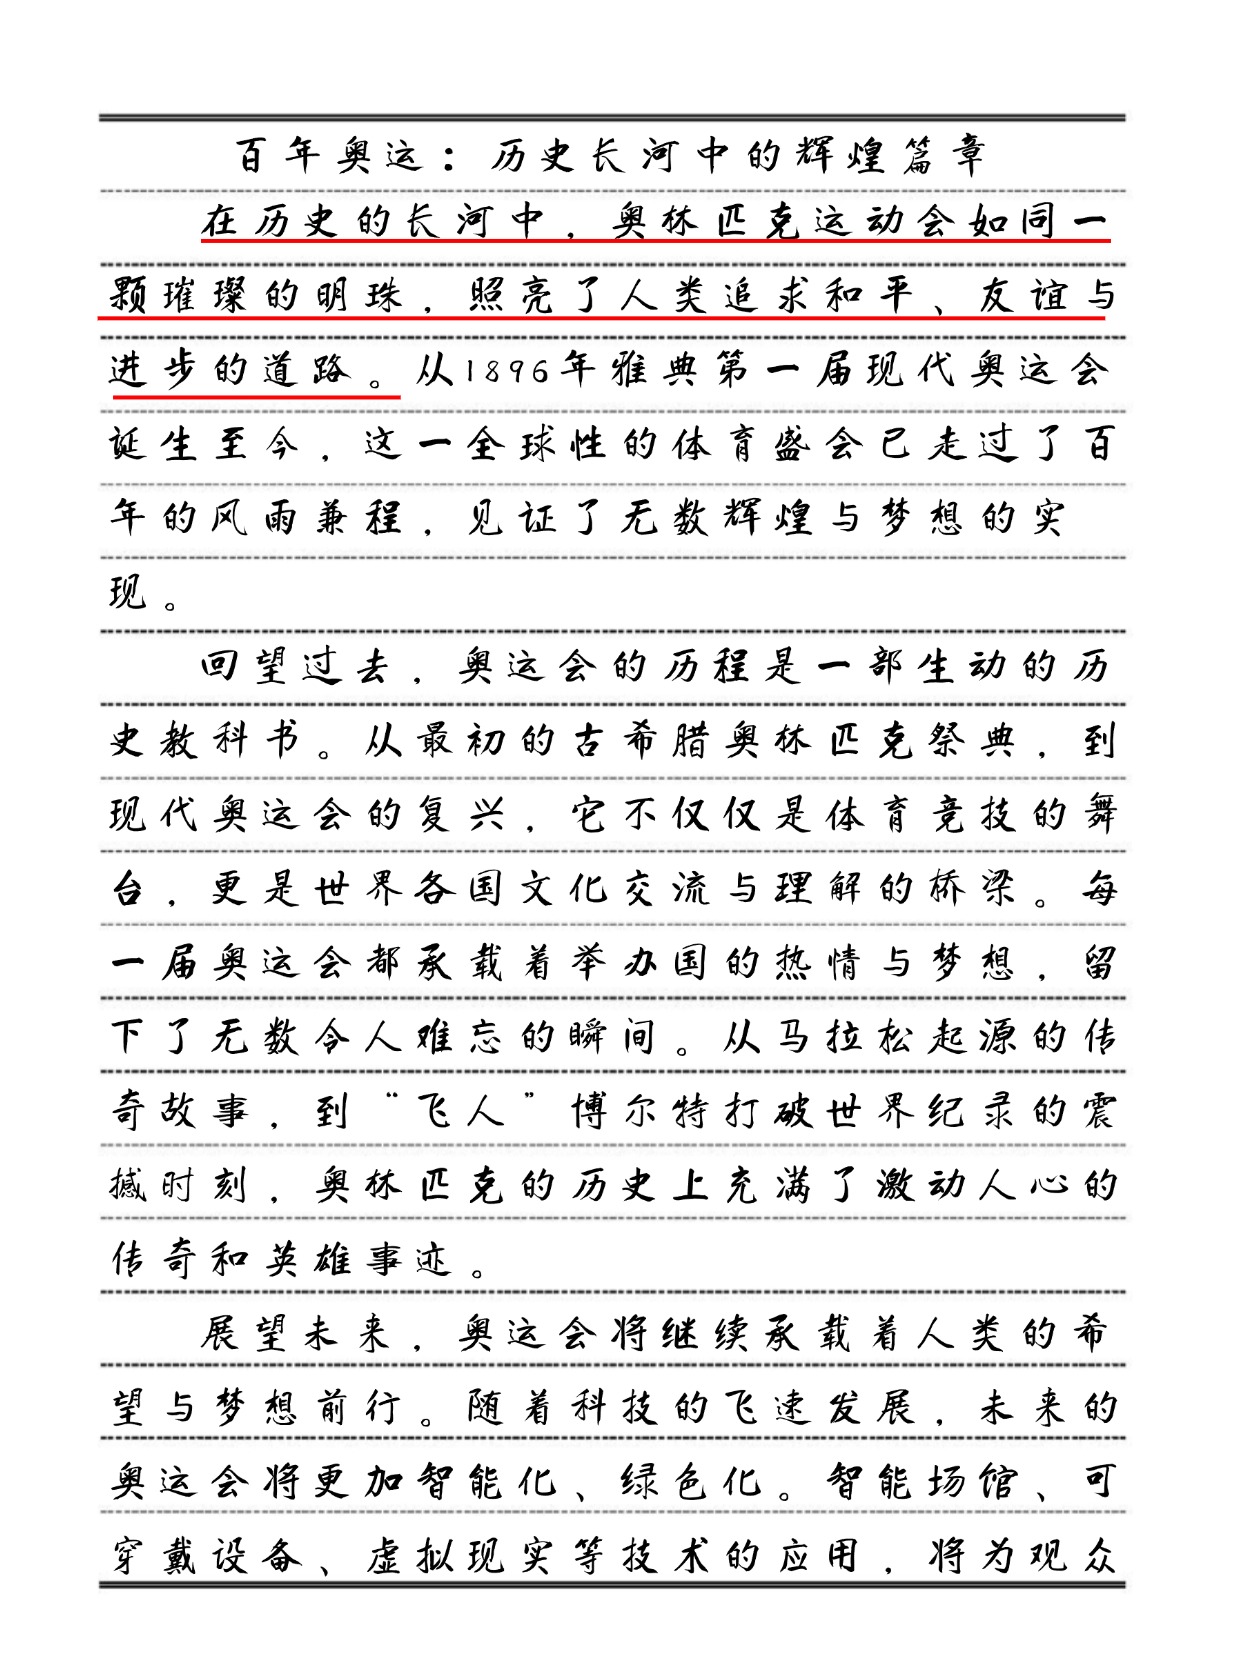 百年奥运：历史长河中的辉煌篇章
在历史的长河中，奥林匹克运动会如同一
颗璀璨的明珠，照亮了人类追求和平、友谊与
进步的道路。从1896年雅典第一届现代奥运会
诞生至今，这一全球性的体育盛会已走过了百
年的风雨兼程，见证了无数辉煌与梦想的实
现。
回望过去，奥运会的历程是一部生动的历
史教科书。从最初的古希腊奥林匹克祭典，到
现代奥运会的复兴，它不仅仅是体育竞技的舞
台，更是世界各国文化交流与理解的桥梁。每
一届奥运会都承载着举办国的热情与梦想，留
下了无数令人难忘的瞬间。从马拉松起源的传
奇故事，到“飞人”博尔特打破世界纪录的震
撼时刻，奥林匹克的历史上充满了激动人心的
传奇和英雄事迹。
展望未来，奥运会将继续承载着人类的希
望与梦想前行。随着科技的飞速发展，未来的
奥运会将更加智能化、绿色化。智能场馆、可
穿戴设备、虚拟现实等技术的应用，将为观众